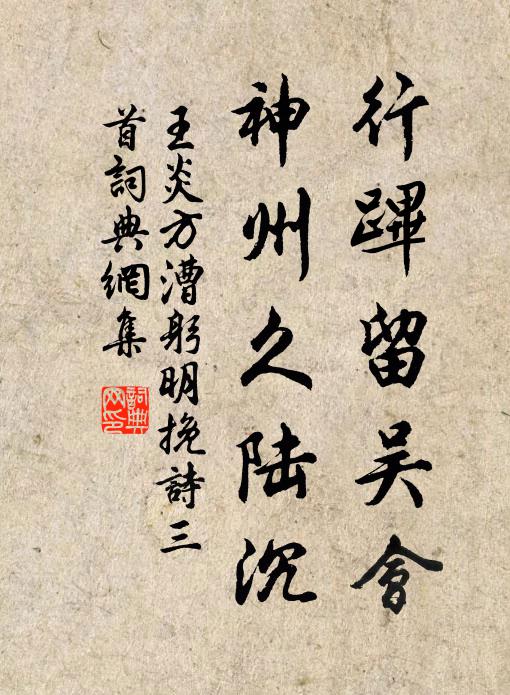 行蹕留吴會
神州久陆沉
王炎方漕躬明挽詩三
首詞典網集
詞典
网印